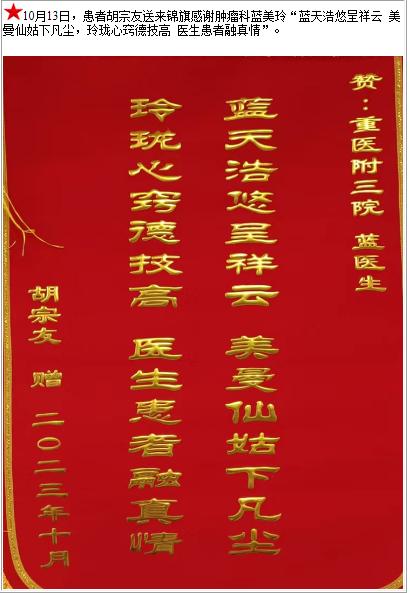 ★10月13日，患者胡宗友送来锦旗感谢肿瘤科蓝美玲“蓝天浩悠呈祥云 美
曼仙姑下凡尘，玲珑心窍德技高 医生患者融真情”。
赞：重医附三院 蓝医生
蓝天浩悠呈祥云 美曼仙姑下凡尘
玲珑心窍德技高 医生患者融真情
胡宗友 赠 二〇二三年十月